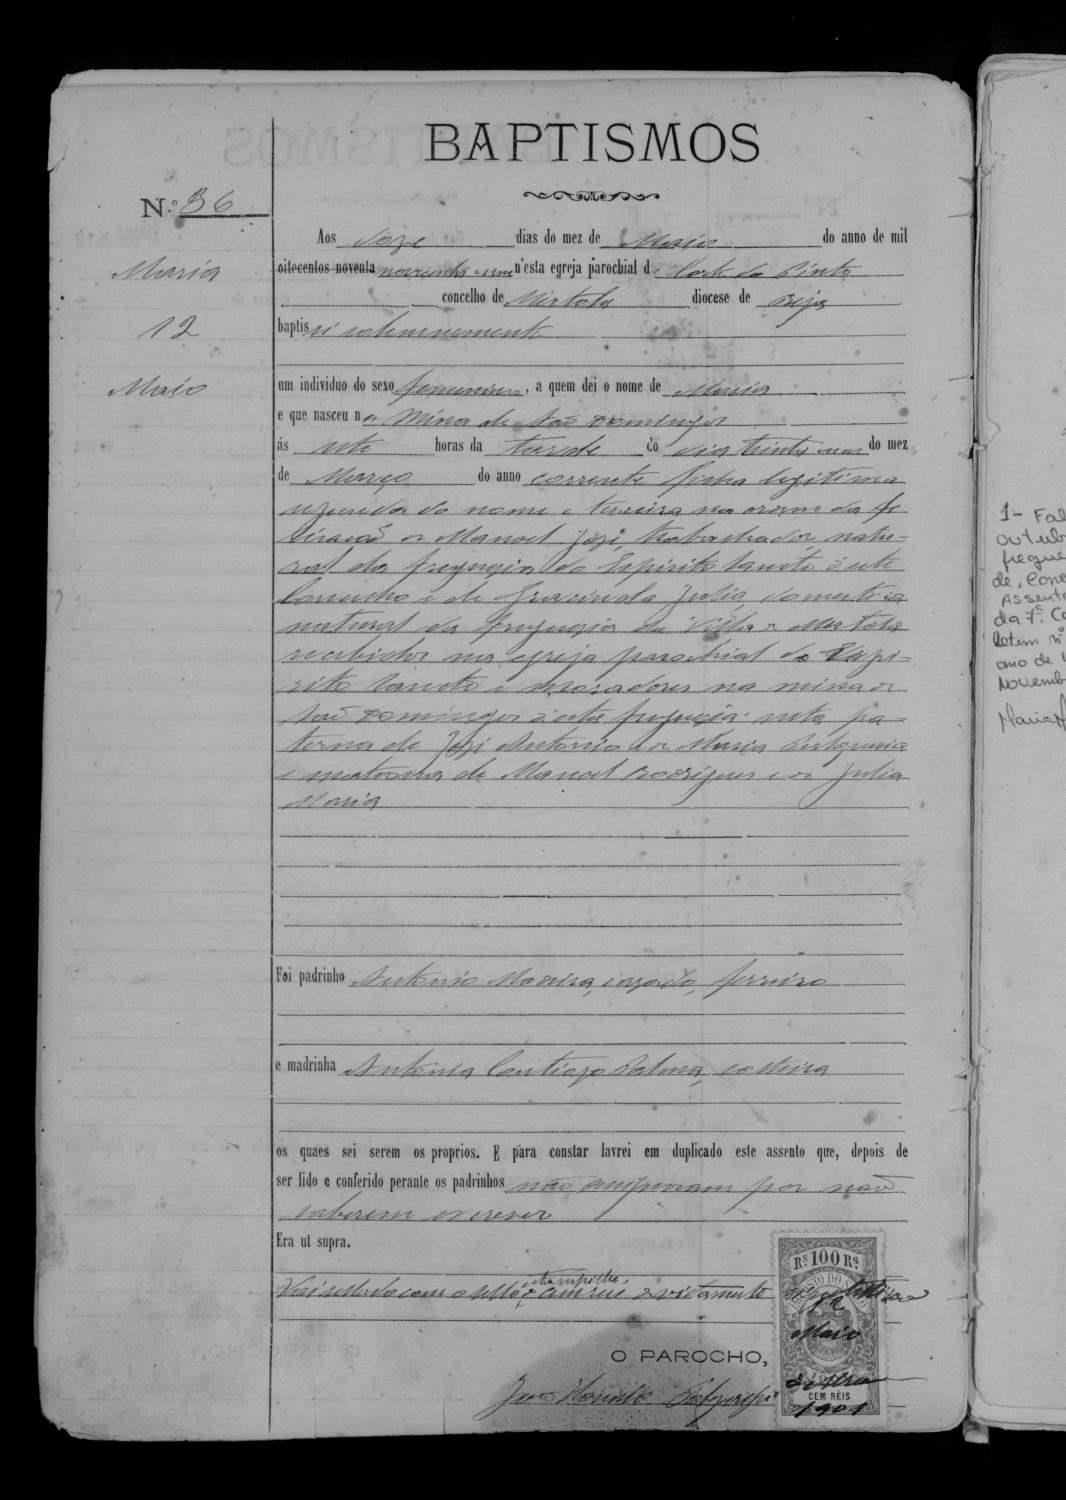 BAPTISMOS
N.º 36
Maria
12
Maio
Aos doze dias do mez de Maio do anno de mil
oitocentos noventa novecentos e um n'esta egreja parochial de Corte do Pinto
concelho de Mertola diocese de Beja
baptisei solemnemente
um individuo do sexo femenino, a quem dei o nome de Maria
e que nasceu na Mina de São Domingos
ás sete horas da tarde do dia trinta um do mez
de Março do anno corrente filha legitima
segunda do nome e terceira na ordem da fi-
liração de Manoel José, trabalhador natu-
ral da freguezia do Espirito Santo d'este
Concelho e de Gracinda Julia, domestica
natural da freguezia da Villa de Mertola
recebidos na egreja parochial do Espi-
rito Santo e moradores na mina de
São Domingos d'esta freguezia: neta pa-
terna de José Antonio e de Maria
e materna de Manoel Rodrigues e de Julia
Maria
Foi padrinho Antonio Moreira, casado, ferreiro
e madrinha Antonia Palma, solteira
os quaes sei serem os proprios. E para constar lavrei em duplicado este assento que, depois de
ser lido e conferido perante os padrinhos não assignaram por não
saberem escrever
Era ut supra.
Vai sellado com o sello d'estampilha de cem reis devidamente
O PAROCHO,
RS 100 RS
12
Maio
de
CEM RÉIS
1901
1- Fal
outub
fregue
de, Conc
Assento
da 7ª Co
letim nº
ano de 1
Novemb